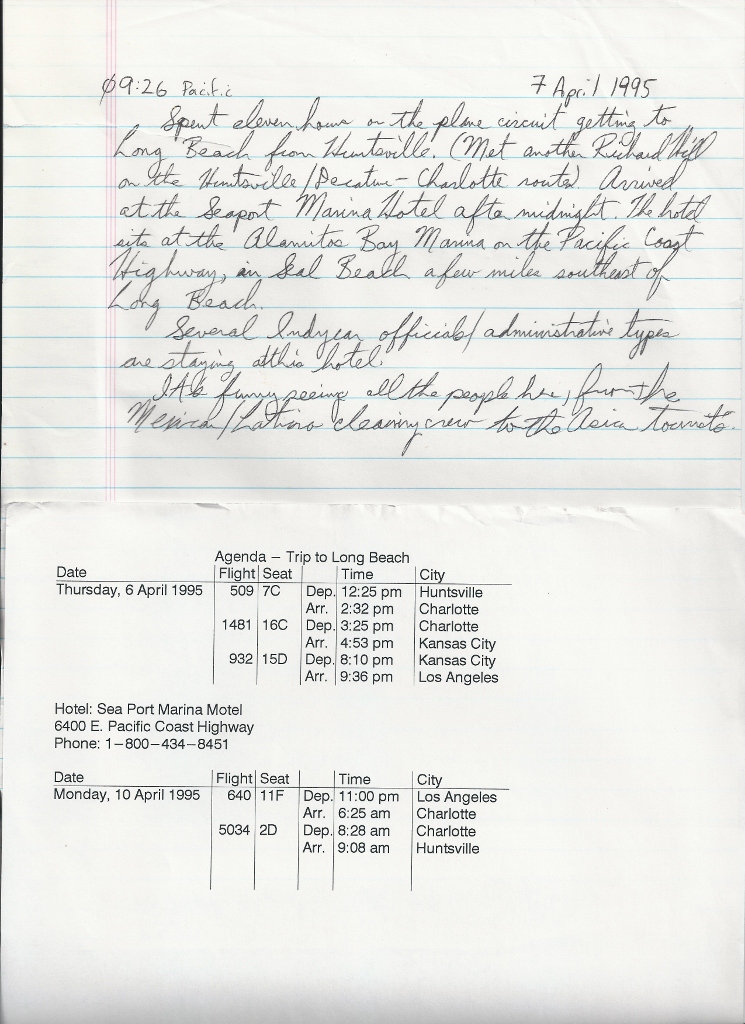 09:26 Pacific 7 April 1995
Spent eleven hours on the plane circuit getting to
Long Beach from Huntsville. (Met another Richard Hill
on the Huntsville/Decatur-Charlotte route). Arrived
at the Seaport Marina Hotel after midnight. The hotel
sits at the Alamitos Bay Marina on the Pacific Coast
Highway, in Seal Beach a few miles southeast of
Long Beach.
Several Indycar officials/administrative types
are staying at this hotel.
It's funny seeing all the people here, from the
Mexican/Latino cleaning crew to the Asian tourists.
Agenda – Trip to Long Beach
Date Flight Seat Time City
Thursday, 6 April 1995 509 7C Dep. 12:25 pm Huntsville
Arr. 2:32 pm Charlotte
1481 16C Dep. 3:25 pm Charlotte
Arr. 4:53 pm Kansas City
932 15D Dep. 8:10 pm Kansas City
Arr. 9:36 pm Los Angeles
Hotel: Sea Port Marina Motel
6400 E. Pacific Coast Highway
Phone: 1–800–434–8451
Date Flight Seat Time City
Monday, 10 April 1995 640 11F Dep. 11:00 pm Los Angeles
Arr. 6:25 am Charlotte
5034 2D Dep. 8:28 am Charlotte
Arr. 9:08 am Huntsville